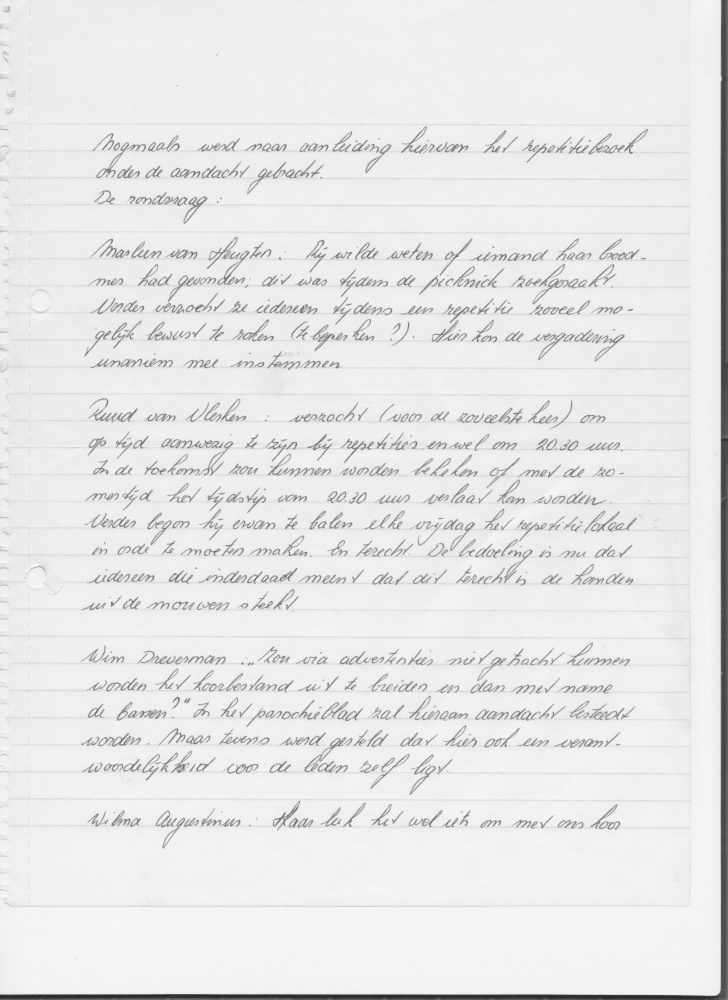 Nogmaals werd naar aanleiding hiervan het repetitiebezoek
onder de aandacht gebracht.
De rondvraag :
Marleen van Heugten : Zij wilde weten of iemand haar brood-
mes had gevonden; dit was tijdens de picknick zoekgeraakt.
Verder verzocht ze iedereen tijdens een repetitie zoveel mo-
gelijk bewust te roken (te beperken ?). Hier kon de vergadering
unaniem mee instemmen
Ruud van Vlerken : verzocht (voor de zoveelste keer) om
op tijd aanwezig te zijn bij repetities en wel om 20.30 uur.
In de toekomst zou kunnen worden bekeken of met de zo-
mertijd het tijdstip van 20.30 uur verlaat kan worden.
Verder begon hij ervan te balen elke vrijdag het repetitielokaal
in orde te moeten maken. En terecht. De bedoeling is nu dat
iedereen die inderdaad meent dat dit terecht is de handen
uit de mouwen steekt.
Wim Dreverman : „Zou via advertenties niet getracht kunnen
worden het koorbestand uit te breiden en dan met name
de bassen?" In het parochieblad zal hieraan aandacht besteedt
worden. Maar tevens werd gesteld dat hier ook een verant-
woordelijkheid voor de leden zelf ligt.
Wilma Augustinus : Haar leek het wel iets om met ons koor